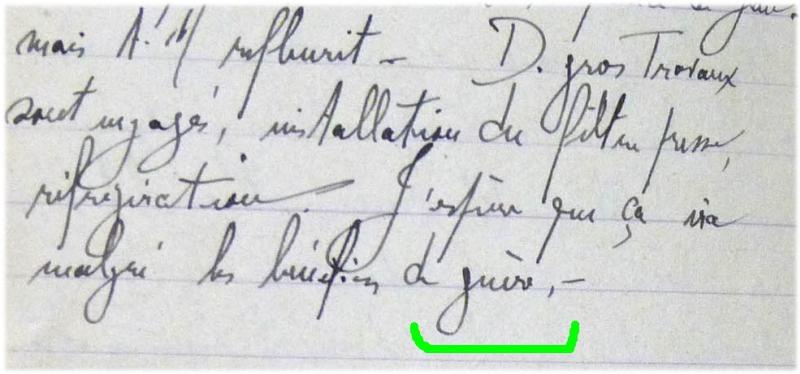 mais A. refleurit – D. gros Travaux
sont engagés, installation du filtre presse,
réfrigération. J'espère que ça ira
malgré les bénéfices de guerre, –